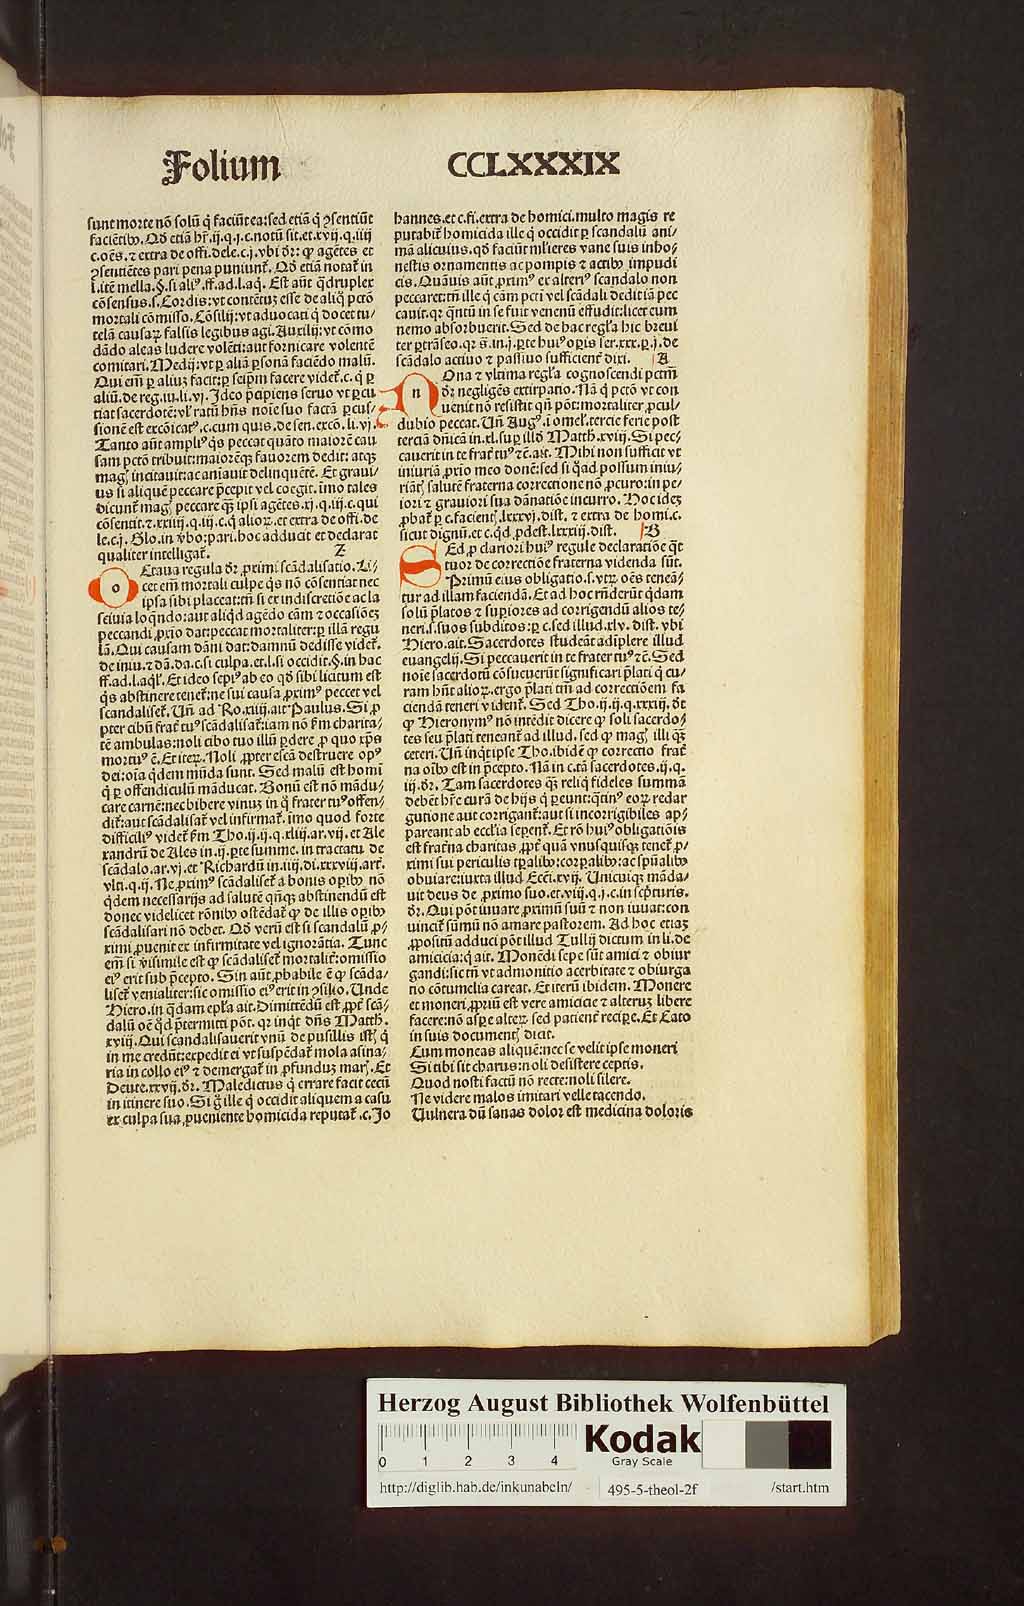 Folium CCLXXXIX
sunt morte nō solū q̇ faciūt ea: sed etiā q̇ ꝯsentiūt
faciētibꝰ. Qd̄ etiā hr̄.ij.q.j.c.notū sit.et.xvij.q.iiij
c.oēs.⁊ extra de offi.dele.c.j.vbi dr̄: ꝙ agētes et
ꝯsentiētes pari pena puniunt̄. Qd̄ etiā notat̄ in
l.itē mella.§.si aliꝰ.ff.ad.l.aq̄. Est aūt q̇druplex
cōsensus.s. Cordis: vt contētuz esse de aliq̄ pctō
mortali cōmisso. Cōsilij: vt aduocati q̇ docet tu/
telā causaꝝ falsis legibus agi. Auxilij: vt cōmo
dādo aleas ludere volēti: aut fornicare volentē
comitari. Medij: vt ꝑ aliā ꝑsonā faciēdo malū.
Qui em̄ ꝑ aliuz facit: ꝑ seip̄m facere videt̄.c.q̇ ꝑ
aliū.de reg.iu.li.vj. Ideo p̄cipiens seruo vt ꝑcu
tiat sacerdotē: vl̓ ratū hn̄s noīe suo factā ꝑcus/
sionē est excōicatꝰ.c.cum quis.de sen.excō.li.vj.
Tanto aūt ampliꝰ q̇s peccat quāto maiorē cau
sam pctō tribuit: maiorēqꝫ fauorem dedit: atqꝫ
magꝭ incitauit: ac aniauit delinquētē. Et graui/
us si aliquē peccare p̄cepit vel coegit. imo tales
dicunt̄ magꝭ peccare qꝫ ipsi agētes.xj.q.iij.c.qui
cōsentit.⁊.xxiij.q.iij.c.q̇ alioꝝ.et extra de offi.de
le.c.j. Glo.in v̓bo: pari. hoc adducit et declarat
qualiter intelligat̄. Z
Octaua regula dr̄ ꝓximi scādalisatio. Li/
cet em̄ mortali culpe q̇s nō cōsentiat nec
ipsa sibi placeat: tn̄ si ex indiscretiōe ac la
sciuia loqndo: aut aliq̇d agēdo cām ⁊ occasiōeꝫ
peccandi ꝓxio dat: peccat mortaliter: ꝑ illā regu
lā. Qui causam dāni dat: damnū dedisse videt̄.
de iniu.⁊ dā.da.c.si culpa.et.l.si occidit.§.in hac
ff.ad.l.aql̓. Et ideo sepiꝰ ab eo qd̄ sibi licitum est
q̇s abstinere tenet̄: ne sui causa ꝓximꝰ peccet vel
scandaliset̄. Un̄ ad Ro.xiiij.ait Paulus. Si ꝓ
pter cibū frat̄ tuꝰ scādalisat̄: iam nō ẜm charita/
tē ambulas: noli cibo tuo illū ꝑdere ꝓ quo xp̄s
mortuꝰ ē. Et iteꝝ. Noli ꝓpter escā destruere opꝰ
dei: oīa q̇dem mūda sunt. Sed malū est homī
q̇ ꝑ offendiculū māducat. Bonū est nō mādu/
care carnē: nec bibere vinuz in q̇ frater tuꝰ offen/
dit̄: aut scādalisat̄ vel infirmat̄. imo quod forte
difficiliꝰ videt̄ ẜm Tho.ij.ij.q.xliij.ar.vij. et Ale
xandrū de Ales in.ij.ꝑte summe. in tractatu de
scādalo.ar.vj. et Richardū in.iiij.di.xxxviij.art̄.
vlti.q.ij. Ne ꝓximꝰ scādaliset̄ a bonis oꝑibꝰ nō
q̇dem necessarijs ad salutē qn̄qꝫ abstinendū est
donec videlicet rōnibꝰ ostēdat̄ ꝙ de illis oꝑibꝰ
scādalisari nō debet. Qd̄ verū est si scandalū ꝓ/
ximi ꝓuenit ex infirmitate vel ignorātia. Tunc
em̄ si v̓isimile est ꝙ scādaliset̄ mortalit̄: omissio
eiꝰ erit sub p̄cepto. Sin aūt ꝓbabile ē ꝙ scāda/
liset̄ venialiter: sic omissio eiꝰ erit in ꝯsilio. Unde
Hiero.in q̇dam epl̓a ait. Dimittēdū est ꝓpt̄ scā/
dalū oē q̇d p̄termitti pōt. qꝛ inq̇t dn̄s Matth.
xviij. Qui scandalisauerit vnū de pusillis istꝭ q̇
in me credūt: expedit ei vt suspēdat̄ mola asina/
ria in collo eiꝰ ⁊ demergat̄ in ꝓfunduz marꝭ. Et
Deute.xxvij.dr̄. Maledictus q̇ errare facit cecū
in itinere suo. Si g̊ ille q̇ occidit aliquem a casu
ex culpa sua ꝓueniente homicida reputat̄.c. Jo
hannes.et c.fi.extra de homici.multo magis re
putabit̄ homicida ille q̇ occidit ꝑ scandalū ani/
mā alicuius.qd̄ faciūt ml̓ieres vane suis inho/
nestis ornamentis ac pompis ⁊ actibꝰ impudi
cis. Quāuis aūt ꝓximꝰ ex alteriꝰ scandalo non
peccaret: tn̄ ille q̇ cām pcti vel scādali dedit iā pec
cauit.qꝛ qntū in se fuit venenū effudit: licet eum
nemo absorbuerit. Sed de hac regl̓a hic breui
ter ꝑtrāseo.qꝛ s̄.in.j.ꝑte huiꝰ oꝑis ser.xxx.ꝑ.j.de
scādalo actiuo ⁊ passiuo sufficient̄ dixi. A
Nona ⁊ vltima regl̓a cognoscendi pctm̄
dr̄ negligēs extirpatio. Nā q̇ pctō vt con
uenit nō resistit qn̄ pōt: mortaliter ꝓcul/
dubio peccat. Un̄ Augꝰ.i omel̓.tercie ferie post
terciā dn̄icā in.xl.suꝑ illd̄ Matth.xviij. Si pec/
cauerit in te frat̄ tuꝰ ⁊c̄.ait. Mihi non sufficit vt
iniuriā ꝓxio meo donē: sed si q̇ad possum iniu/
riātꝭ salutē fraterna correctione nō ꝓcuro: in pe/
iori ⁊ grauiori sua dānatiōe incurro. Hoc ideꝫ
ꝓbat̄ ꝑ c.facientꝭ.lxxxvj.dist.⁊ extra de homi.c.
sicut dignū.et c.q̇d ꝓdest.lxxxiij.dist. B
Sed ꝓ clariori huiꝰ regule declaratiōe q̄t
tuor de correctiōe fraterna videnda sūt.
Primū eius obligatio.s.vtꝝ oēs teneā/
tur ad illam faciendā. Et ad hoc rn̄derūt q̇dam
solū p̄latos ⁊ suꝑiores ad corrigendū alios te/
neri.s.suos subditos: ꝑ c.sed illud.xlv.dist.vbi
Hiero.ait. Sacerdotes studeāt adīplere illud
euangelij. Si peccauerit in te frater tuꝰ ⁊c̄. Sed
noīe sacerdotū cōsueuerūt significari p̄lati q̇ cu/
ram hn̄t alioꝝ.ergo p̄lati tm̄ ad correctiōem fa
ciendā teneri vident̄. Sed Tho.ij.ij.q.xxxiij.dt̄
ꝙ Hieronymꝰ nō intēdit dicere ꝙ soli sacerdo/
tes seu p̄lati teneant̄ ad illud.sed ꝙ magꝭ illi qꝫ
ceteri. Un̄ inq̇t ipse Tho.ibidē ꝙ correctio frat̄
na oībꝰ est in p̄cepto. Nā in c.tā sacerdotes.ij.q.
iij.dr̄. Tam sacerdotes qꝫ reliq̇ fideles summā
debēt hr̄e curā de hijs q̇ ꝑeunt: q̄tinꝰ eoꝝ redar
gutione aut corrigant̄: aut si incorrigibiles ap/
pareant ab eccl̓ia seꝑent̄. Et rō huiꝰ obligatiōis
est frat̄na charitas ꝓpt̄ quā vnusquisqꝫ tenet̄ ꝓ/
ximi sui periculis tꝑalibꝰ: corꝑalibꝰ: ac spūalibꝰ
obuiare: iuxta illud Ecci.xvij. Unicuiqꝫ māda/
uit deus de ꝓximo suo.et.viij.q.j.c.in scpturis.
dr̄. Qui pōt iuuare ꝓximū suū ⁊ non iuuat: con
uincit̄ sūmū nō amare pastorem. Ad hoc etiaꝫ
ꝓpositū adduci pōt illud Tullij dictum in li.de
amicicia: q̇ ait. Monēdi sepe sūt amici ⁊ obiur
gandi: sic tn̄ vt admonitio acerbitate ⁊ obiurga
no cōtumelia careat. Et iterū ibidem. Monere
et moneri ꝓpriū est vere amicicie ⁊ alteruꝫ libere
facere: nō asꝑe alteꝝ sed patient̄ reciꝑe. Et Cato
in suis documentꝭ dicit.
Cum moneas aliquē: nec se velit ipse moneri
Si tibi sit charus: noli desistere ceptis.
Quod nosti factū nō recte: noli silere.
Ne videre malos imitari velle tacendo.
Uulnera dū sanas dolor est medicina doloris
Herzog August Bibliothek Wolfenbüttel
0 1 2 3 4 Kodak
Gray Scale
http://diglib.hab.de/inkunabeln/ 495-5-theol-2f /start.htm